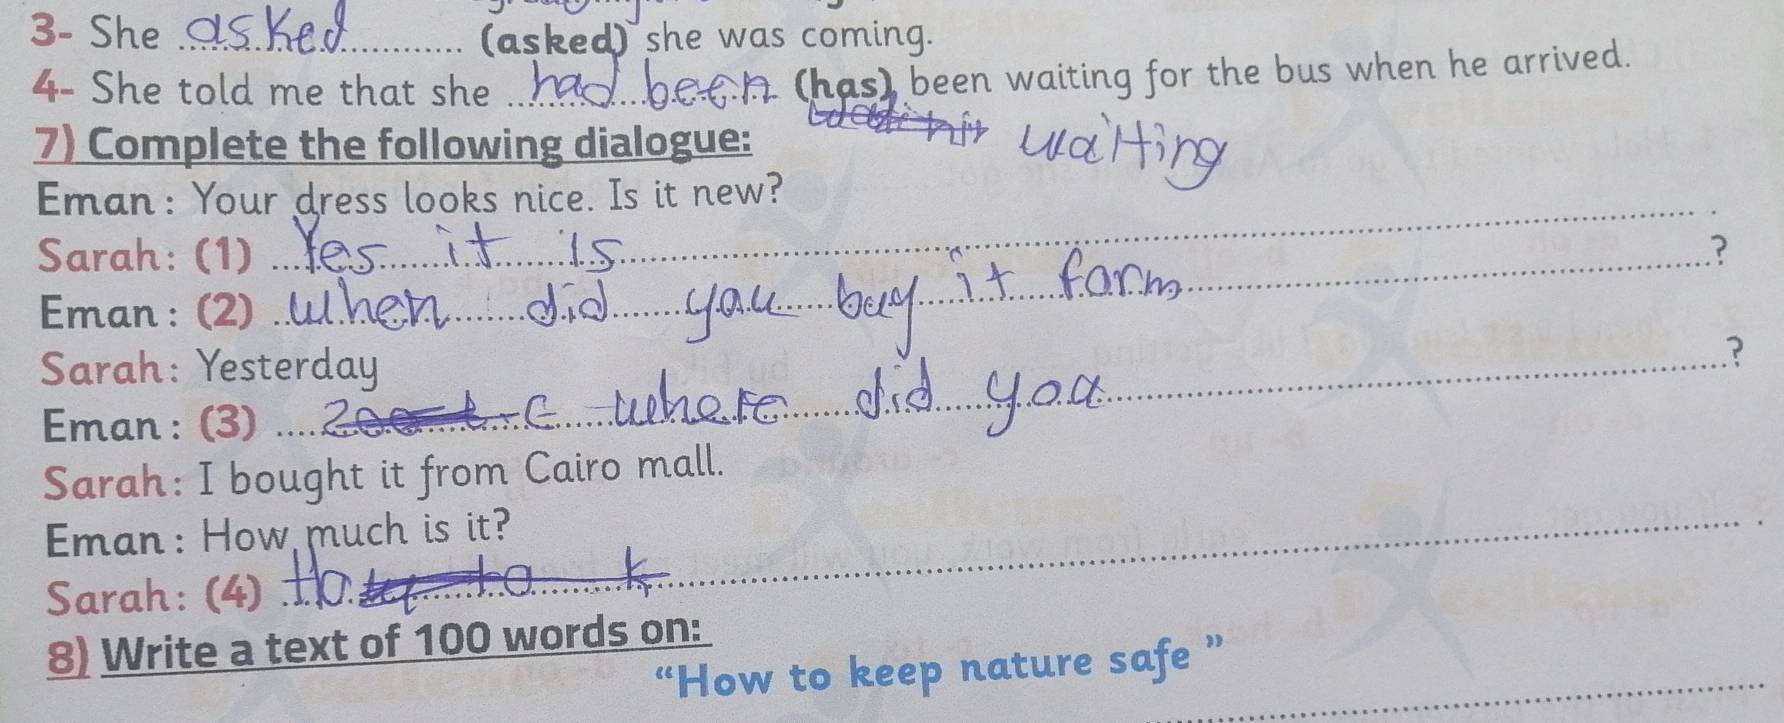 3- She asked (asked) she was coming.
4- She told me that she had been (has) been waiting for the bus when he arrived.
waiting
7) Complete the following dialogue:
Eman: Your dress looks nice. Is it new?
Sarah: (1) Yes it is
Eman: (2) When did you buy it form ?
Sarah: Yesterday
Eman: (3) where did you ?
Sarah: I bought it from Cairo mall.
Eman: How much is it?
Sarah: (4)
8) Write a text of 100 words on:
“How to keep nature safe”